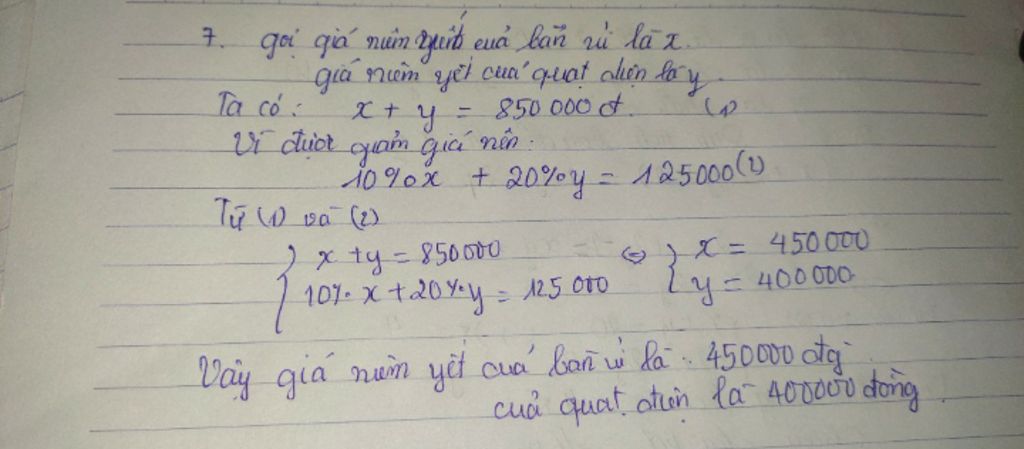 7. gọi giá niêm yết của bàn ủi là x.
giá niêm yết của quạt điện là y.
Ta có: x + y = 850 000 đ. (1)
Vì được giảm giá nên:
10% x + 20% y = 125000 (2)
Từ (1) và (2)
{ x + y = 850000 ⇔ { x = 450000
10% x + 20% y = 125 000 y = 400000
Vậy giá niêm yết của bàn ủi là: 450000 đg
của quạt điện là 400000 đồng.